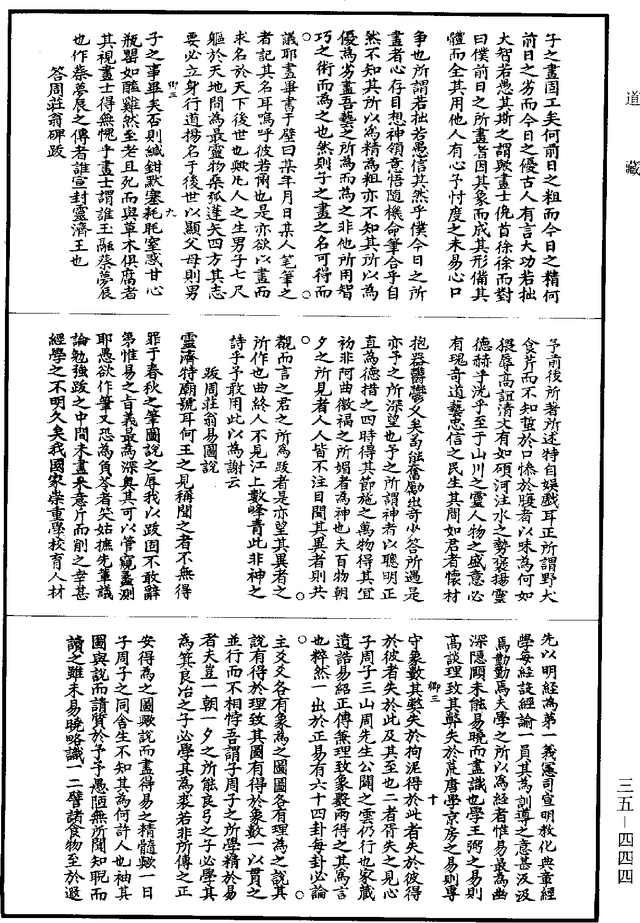 道藏
子之畫固工矣何前日之粗而今日之精何
前日之劣而今日之優古人有言大功若拙
大智若愚其斯之謂歟畫士俛首徐徐而對
曰僕前日之所畫者因其象而成其形備其
體而全其用他人有心予忖度之未易心口
爭也所謂若拙若愚信其然乎僕今日之所
畫者心存目想神領意悟隨機命筆合乎自
然不知其所以為精為粗亦不知其所以為
優為劣盡吾藝之所為而為之非他所用智
巧之術而為之也然則子之畫之名可得而
議耶畫畢書于壁曰某年月日某人筆筆之
者記其名耳嗚呼彼若爾也是亦欲以畫而
求名於天下後世也歟凡人之生男子七尺
軀於天地間為最靈物桑弧蓬矢四方其志
要必立身行道揚名于後世以顯父母則男
卿三
九
子之事畢矣否則緘鉗默塞耗眊窒惑甘心
瓶罌如醯雞然至老且死而與草木俱腐者
其視畫士得無愧乎畫士謂誰王融蔡夢辰
也作蔡夢辰之傳者誰宣封靈濟王也
答周莊翁碑跋
予前後所著所述特自娛戲耳正所謂野犬
食芹而不知蜇於口慘於腹者以味為何如
猥辱高誼清文有如碩河注水之勢褒揚靈
德赫乎洸乎至于山川之靈人物之盛意必
有瑰奇道藝忠信之民生其間如君者懷材
抱器鬱鬱久矣苟能奮勵出奇少答所遇是
亦予之所深望也予之所謂神者以聰明正
直為德措之四時得其節施之萬物得其宜
初非阿曲徼福之所媚者為神也夫百物朝
夕之所見者人人皆不注目聞其異者則共
觀而言之君之所為跋者是亦望其異者之
所作也曲終人不見江上數峰青此非神之
詩乎予敢用此以為謝云
跋周莊翁易圖說
靈濟特廟號耳何王之見稱聞之者不無得
罪于春秋之筆圖說之辱我以跋固不敢辭
第惟易之旨義最為深奧其可以管窺蠡測
耶愚欲作筆又恐為負苓者笑姑摭先輩議
論勉強跋之中間未盡來意斤而削之幸甚
經學之不明久矣我國家崇重學校育人材
先以明經為第一義憲司宣明教化典章經
學每經設經諭一員其為訓導之意甚汲汲
焉勤勤焉夫學之所以為經者惟易最為幽
深隱賾未能易曉而盡識也學王弼之易則
高談理致其弊失於荒唐學京房之易則專
卿三
十
守象數其弊失於拘泥得於此者失於彼得
於彼者失於此及其至也二者胥失之見心
子周子三山周先生公闢之雲仍行也家藏
遺誥易紹正傳無理致象數兩得之其寓言
也粹然一出於正易有六十四卦每卦必論
主爻爻各有象為之圖圖各有理為之說其
說有得於理致其圖有得於象數一以貫之
並行而不相悖吾謂子周子之所學精於易
者夫豈一朝一夕之所能良弓之子必學其
為箕良冶之子必學其為裘若非所傳之正
安得為之圖歟說而盡得易之精髓歟一日
子周子之同舍生不知其為何許人也袖其
圖與說而請質於予予愚陋無所聞知眂而
讀之雖未易曉略識一二譬諸食物至於遐
三五—四四四